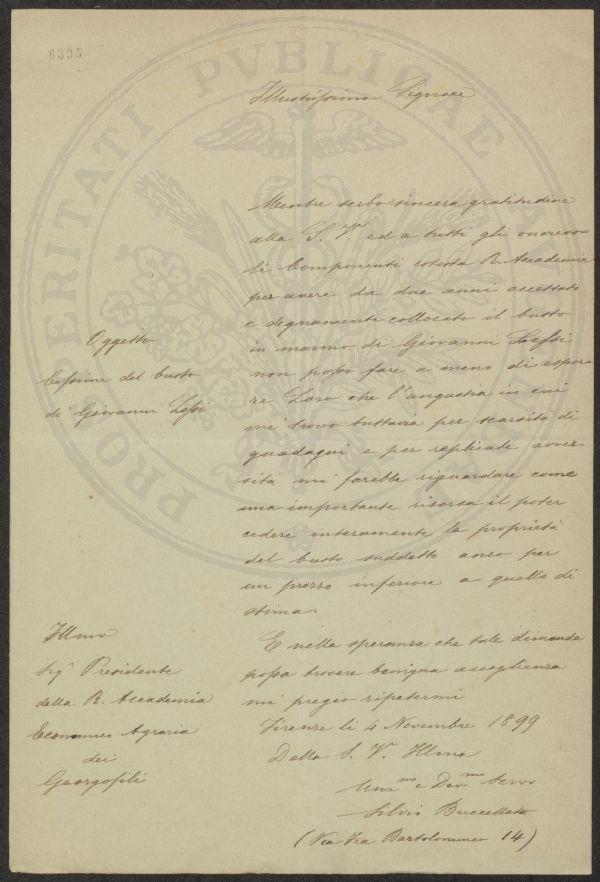 6335
PROSPERITATI PVBLICAE AVGENDAE
Illustrissimo Signore
Mentre serbo sincera gratitudine
alla S. V. ed a tutti gli onorevo-
li Componenti cotesta R. Accademia
per avere da due anni accettato
e degnamente collocato il busto
in marmo di Giovanni Lessi
non posso fare a meno di espor-
re Loro che l'angustia in cui
mi trovo tuttavia per scarsità di
guadagni e per replicate avver-
sità mi farebbe riguardare come
una importante risorsa il poter
cedere interamente la proprietà
del busto suddetto anco per
un prezzo inferiore a quello di
stima.
E nella speranza che tale dimanda
possa trovare benigna accoglienza
mi pregio ripetermi
Firenze li 4 Novembre 1899
Della S. V. Illma
Ummo e Devmo Servo
Silvio Buccellato
(Via Fra Bartolommeo 14)
Oggetto
Cessione del busto
di Giovanni Lessi
Illmo
Sigr Presidente
della R. Accademia
Economico Agraria
dei
Georgofili